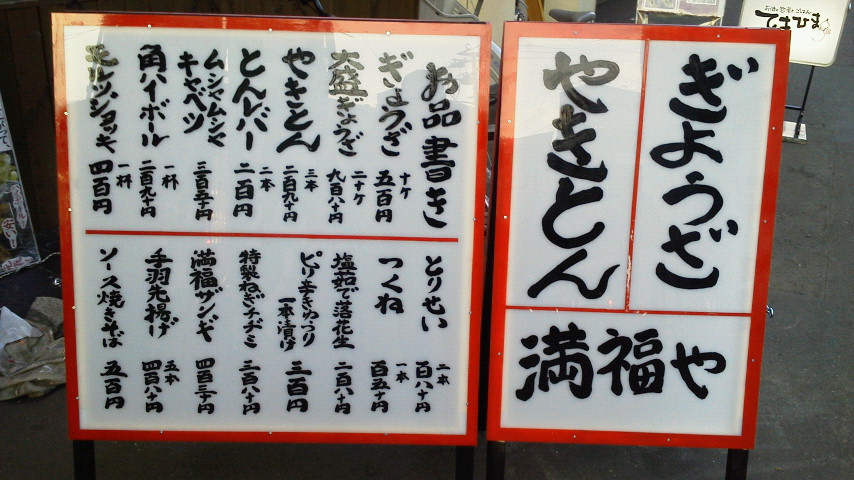 お品書き
ぎょうざ
十ケ
五百円
大盛ぎょうざ
二十ケ
九百八十円
やきとん
三本
二百九十円
とんレバー
二本
二百円
ムシャムシャ
キャベツ
角ハイボール
一杯
二百九十円
モルツジョッキ
一杯
四百円
とりせい
二本
百八十円
つくね
一本
百五十円
塩茹で落花生
二百八十円
ピリ辛きゅうり
一本漬け
三百円
特製ねぎチヂミ
三百八十円
満福ザンギ
四百三十円
手羽先揚げ
五本
四百八十円
ソース焼きそば
五百円
ぎょうざ
やきとん
満福や
てまひま